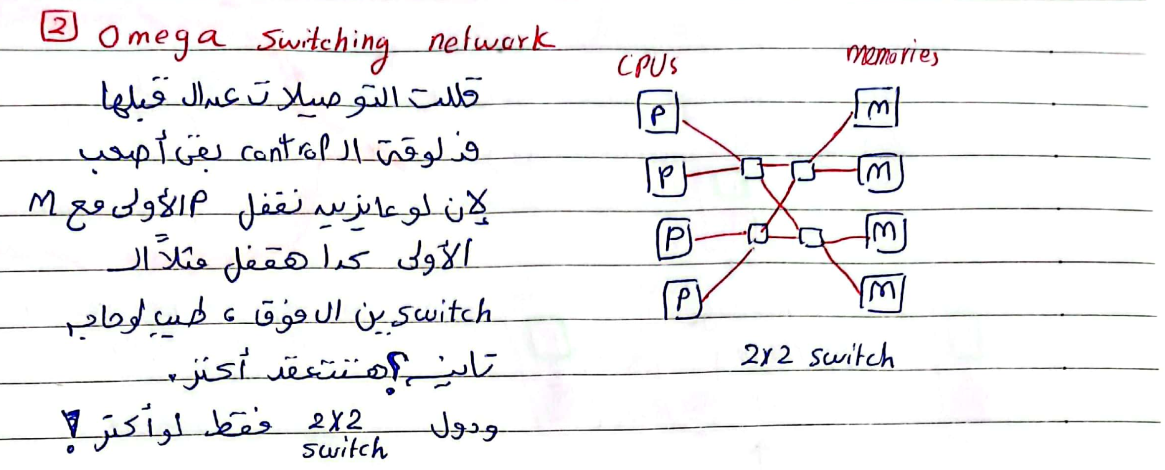 2 Omega switching network
قللت التوصيلات عدال قبلها
فدلوقتى ال control بقى أصعب
لإن لو عايزين نقفل P الأولى مع M
الأولى كدا هقفل مثلاً ال
switch ين ال فوق ، طيب لو حاجه
تانيه؟ هتتعقد أكتر.
ودول 2x2 switch فقط لو أكتر ؟!
CPUs memories
P M
P M
P M
P M
2x2 switch